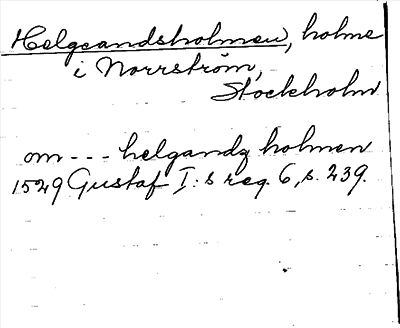 Helgeandsholmen, holme
i Norrström,
Stockholm
om --- helgandz holmen
1529 Gustaf I:s reg. 6, s. 239.